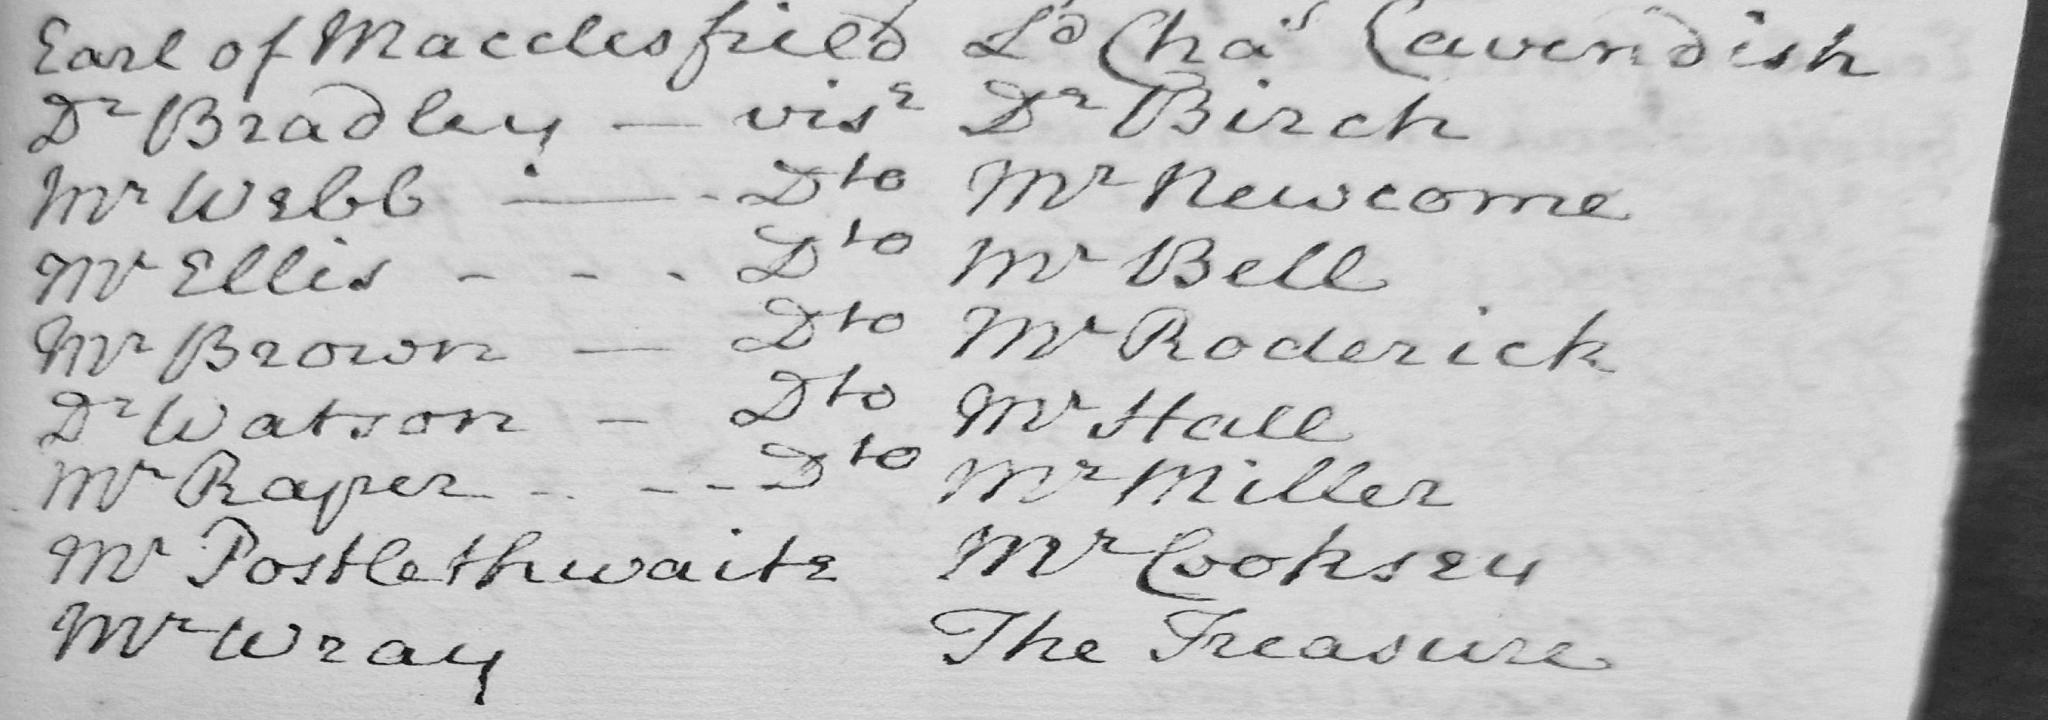 Earl of Macclesfield Ld Chas Cavendish
Dr Bradley — visr Dr Birch
Mr Webb — Dto Mr Newcome
Mr Ellis - - - Dto Mr Bell
Mr Brown — Dto Mr Roderick
Dr Watson — Dto Mr Hall
Mr Raper - - - - Dto Mr Miller
Mr Postlethwaite Mr Cooksey
Mr Wray The Treasure